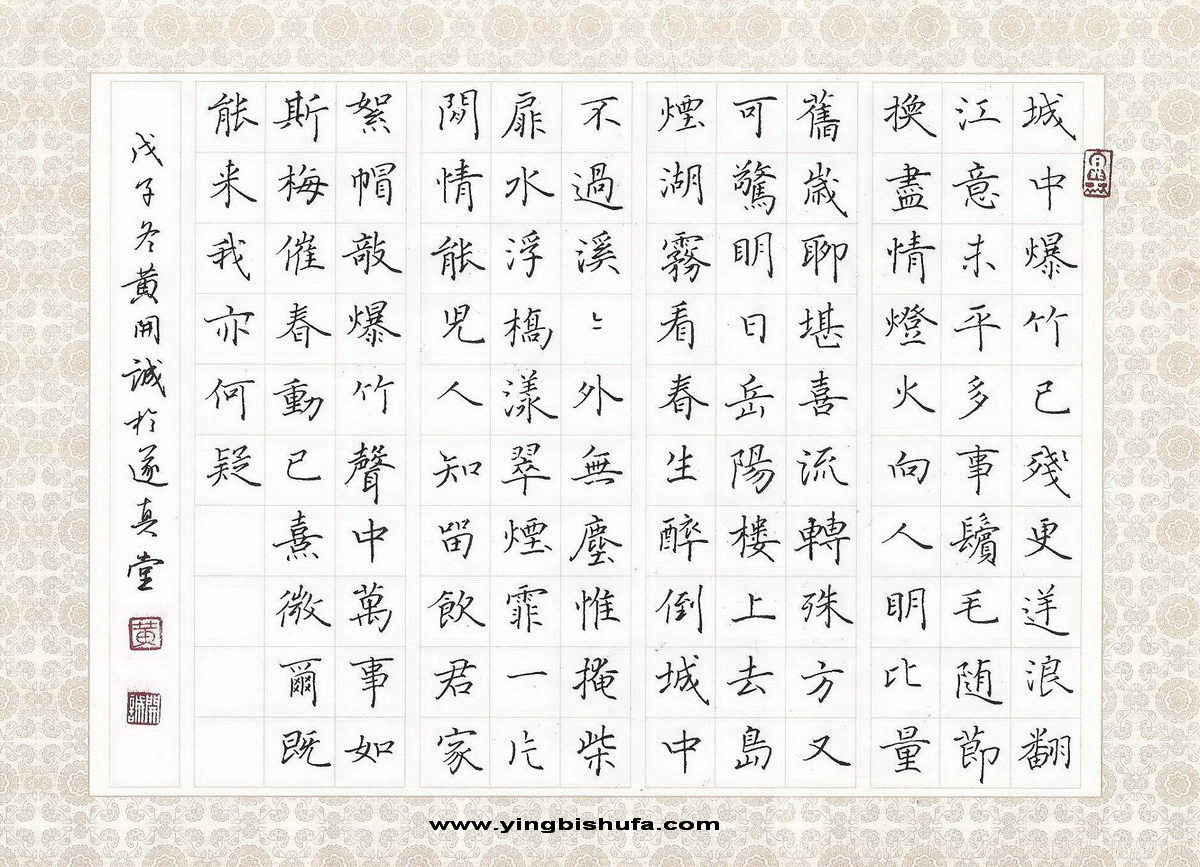 城中爆竹已殘更逆浪翻
江意未平多事鬢毛随節
換盡情燈火向人明比量
舊歲聊堪喜流轉殊方又
可驚明日岳陽楼上去島
煙湖霧看春生醉倒城中
不過溪〻外無塵惟掩柴
扉水浮橋漾翠煙霏一片
閑情能児人知留飲君家
絮帽敲爆竹聲中萬事如
斯梅催春動已熹微爾既
能来我亦何疑
戊子冬黄開誠於遂真堂
黄
開誠
www.yingbishufa.com